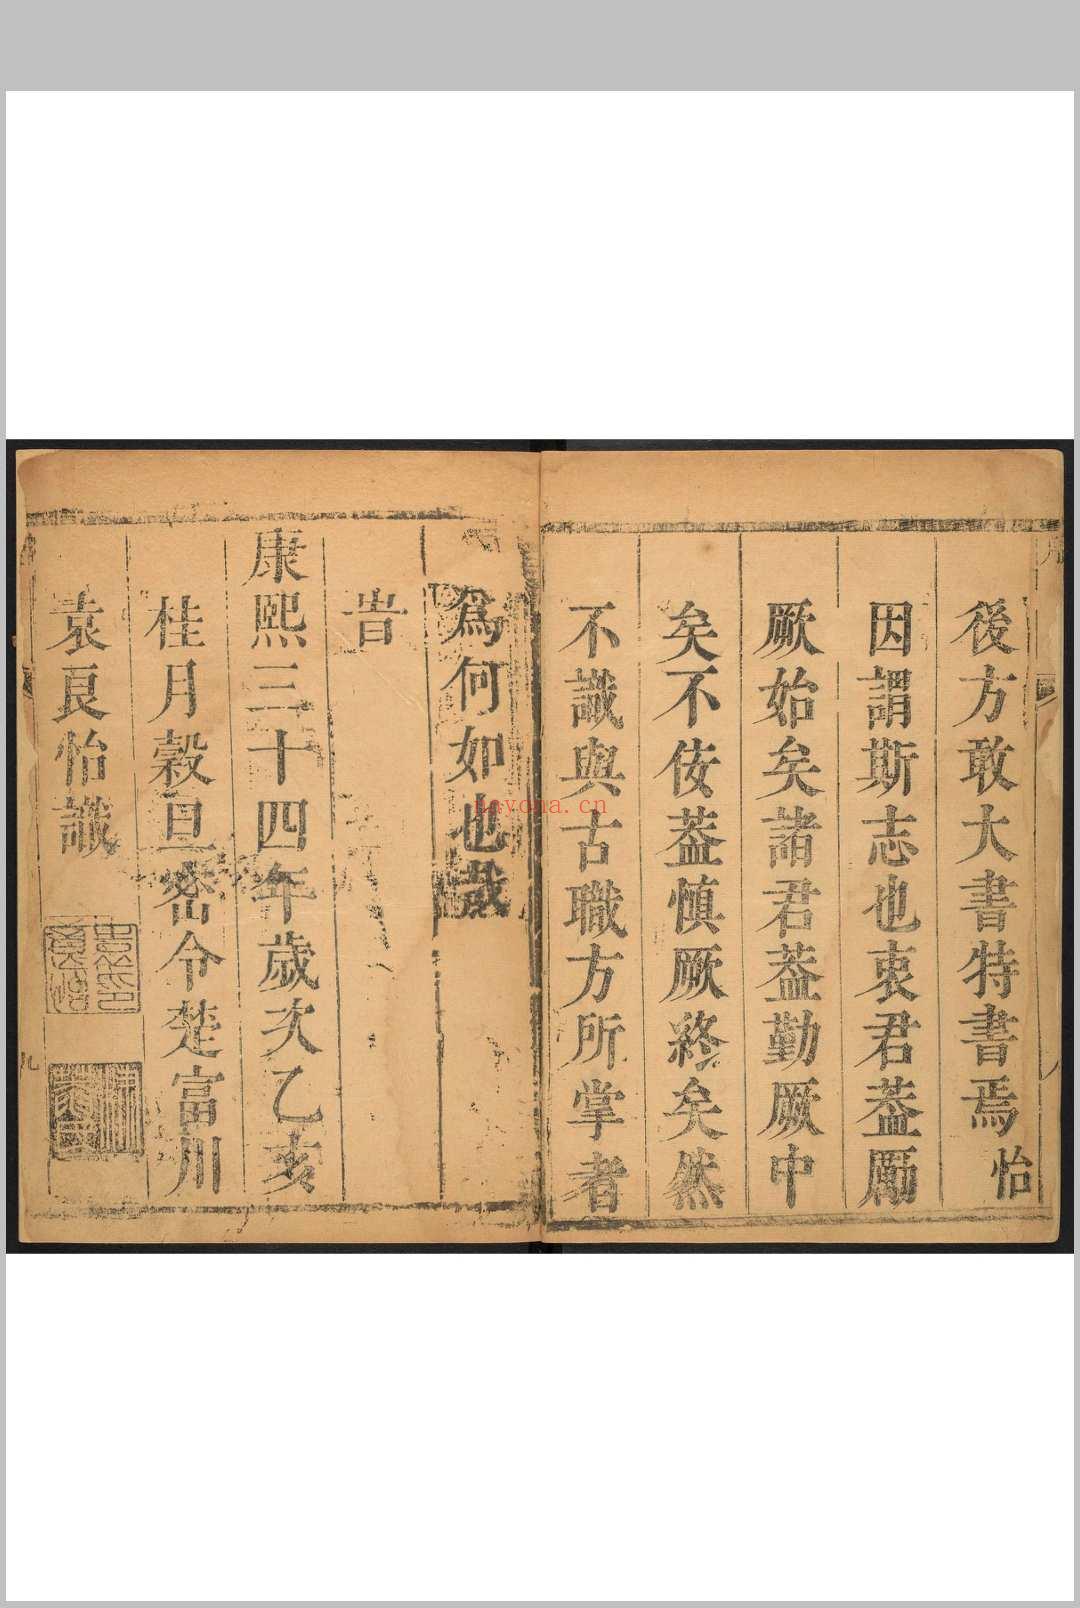 後方敢大書特書焉怡
因謂斯志也衷君葢勵
厥始矣諸君葢勤厥中
矣不侫葢慎厥終矣然
不識與古職方所掌者
爲何如也哉
旹
康熙三十四年歲次乙亥
桂月穀旦宻令楚富川
袁良怡識
九
nayona.cn